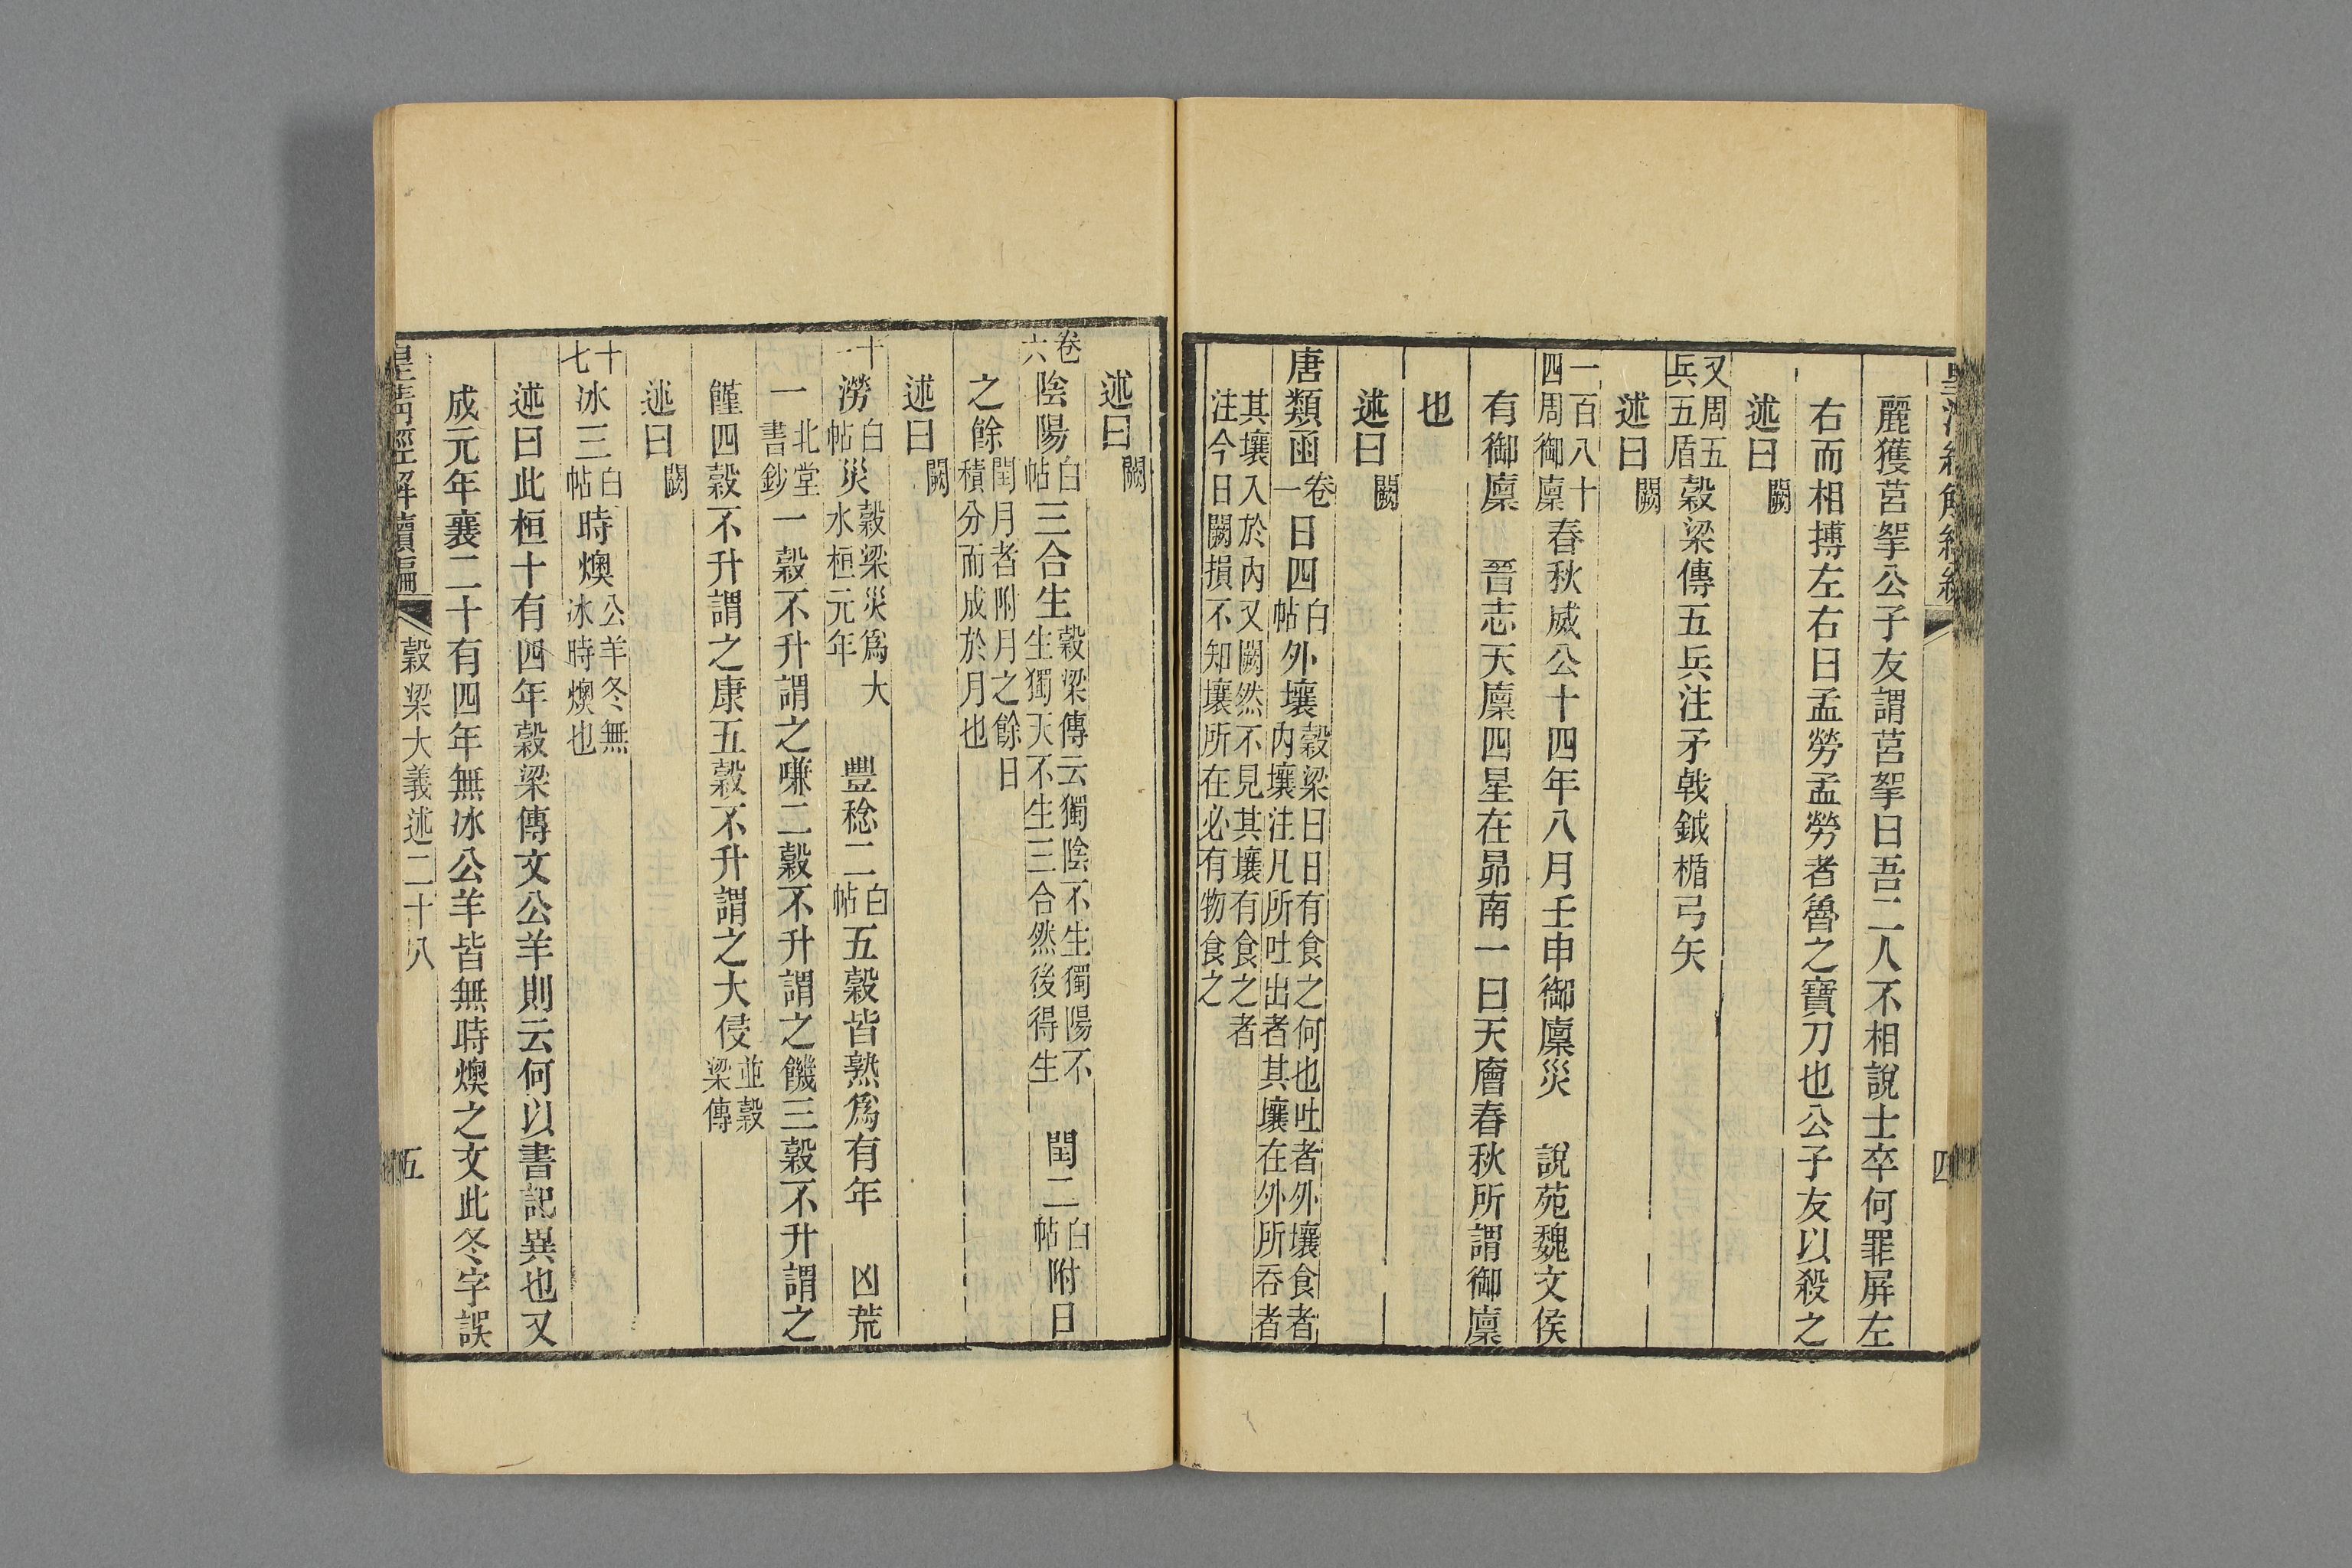 麗獲莒挐公子友謂莒挐曰吾二人不相說士卒何罪屏左
右而相搏左右曰孟勞孟勞者魯之寶刀也公子友以殺之
述曰闕
又周五兵五盾穀梁傳五兵注矛戟鉞楯弓矢
述曰闕
一百八十四周御廩春秋威公十四年八月壬申御廩災 說苑魏文侯
有御廩 晉志天廩四星在昴南一曰天廥春秋所謂御廩
也
述曰闕
唐類函卷一日四白帖外壤穀梁曰日有食之何也吐者外壤食者內壤注凡所吐出者其壤在外所吞者
其壤入於內又闕然不見其壤有食之者注今日闕損不知壤所在必有物食之
四
述曰闕
卷六陰陽白帖三合生穀梁傳云獨陰不生獨陽不生獨天不生三合然後得生 閏二白帖附日
之餘閏月者附月之餘日積分而成於月也
述曰闕
十一澇白帖災穀梁災爲大水桓元年 豐稔二白帖五穀皆熟爲有年 凶荒
一北堂書鈔一穀不升謂之嗛二穀不升謂之饑三穀不升謂之
饉四穀不升謂之康五穀不升謂之大侵並穀梁傳
述曰闕
十七冰三白帖時燠公羊冬無冰時燠也
述曰此桓十有四年穀梁傳文公羊則云何以書記異也又
成元年襄二十有四年無冰公羊皆無時燠之文此冬字誤
皇清經解續編 穀梁大義述二十八 五